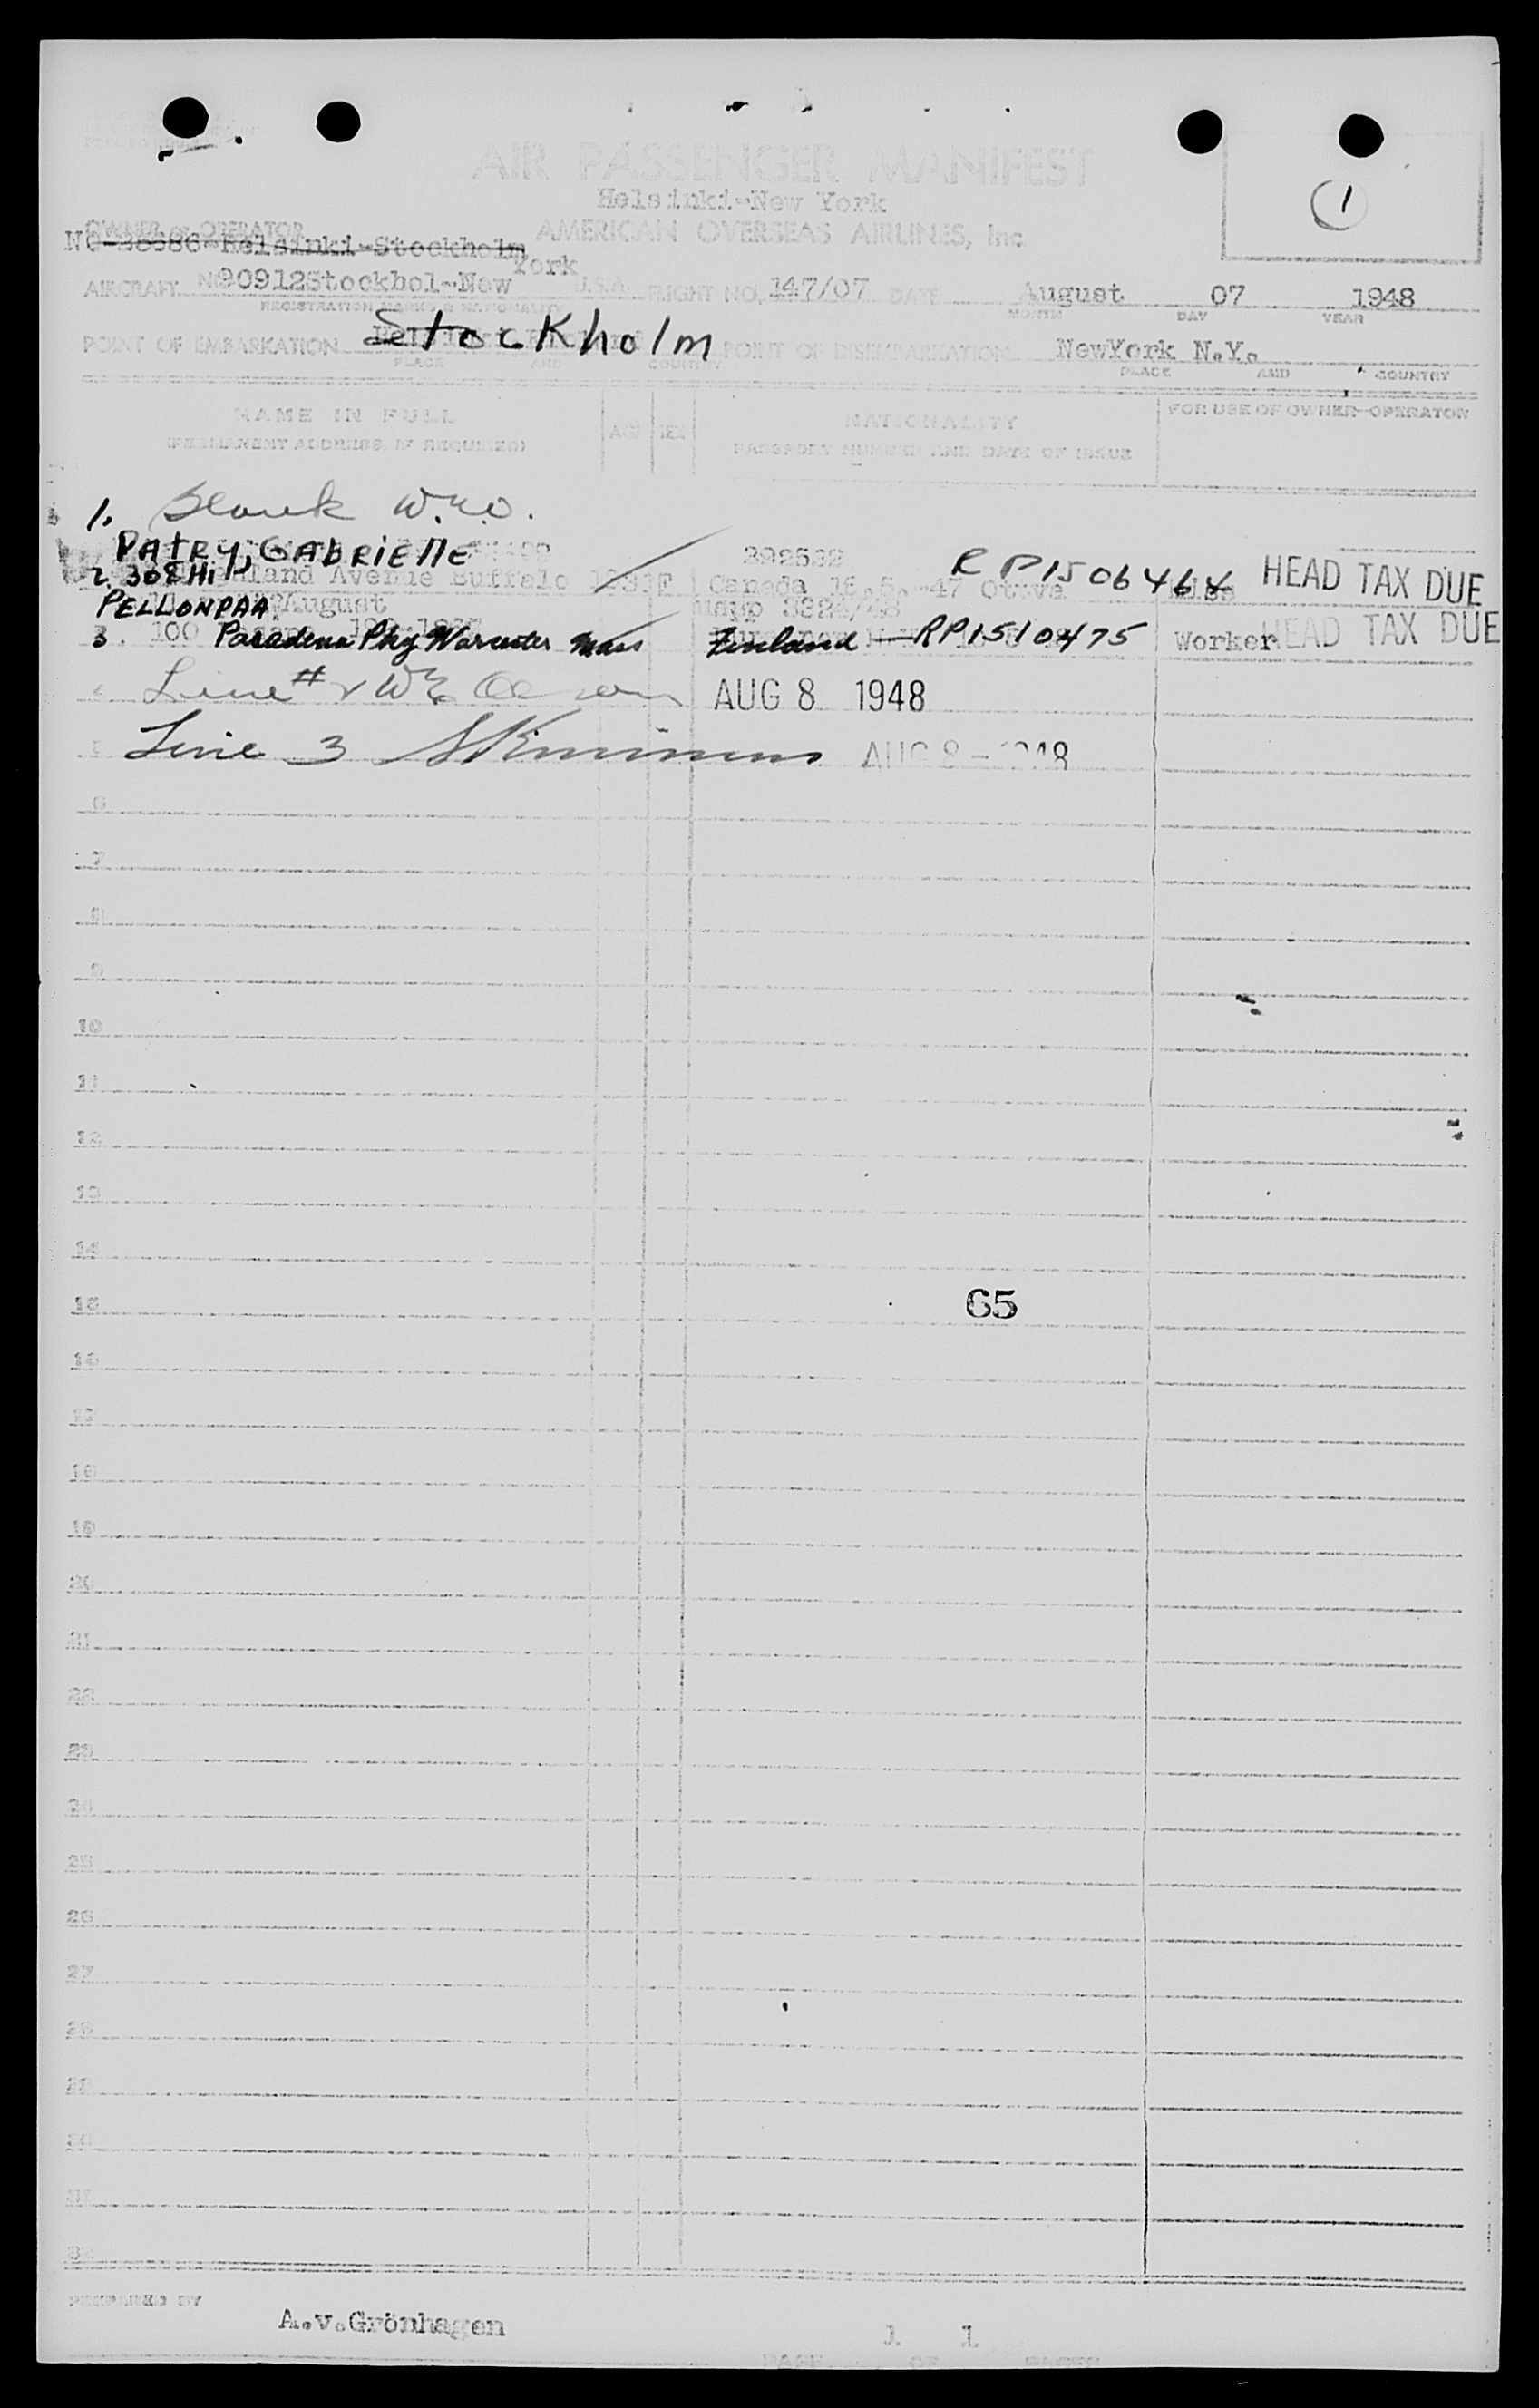 AIR PASSENGER MANIFEST
Helsinki-New York
OWNER or OPERATOR AMERICAN OVERSEAS AIRLINES, Inc
Helsinki-Stockholm
York
AIRCRAFT 90912Stockhol-New U.S.A. FLIGHT NO. 147/07 DATE August 07 1948
REGISTRATION MARKS & NATIONALITY MONTH DAY YEAR
POINT OF EMBARKATION Stockholm POINT OF DISEMBARKATION NewYork N.Y.
PLACE AND COUNTRY PLACE AND COUNTRY
NAME IN FULL AGE SEX NATIONALITY FOR USE OF OWNER-OPERATOR
(PERMANENT ADDRESS, IF REQUIRED) PASSPORT NUMBER AND DATE OF ISSUE
1. Blank
PATRY, GABRIELLE 392532
2. 308 Highland Avenue Buffalo Canada 47 RP1506468 HEAD TAX DUE
PELLONPAA August
3. 100 Finland RP1510475 Worker HEAD TAX DUE
4 Line # 2 AUG 8 1948
5 Line 3 AUG 8 - 1948
6
7
8
9
10
11
12
13
14
15 65
16
17
18
19
20
21
22
23
24
25
26
27
28
29
30
31
32
PREPARED BY A.v.Grönhagen
PAGE 1 OF 1 PAGES
(1)